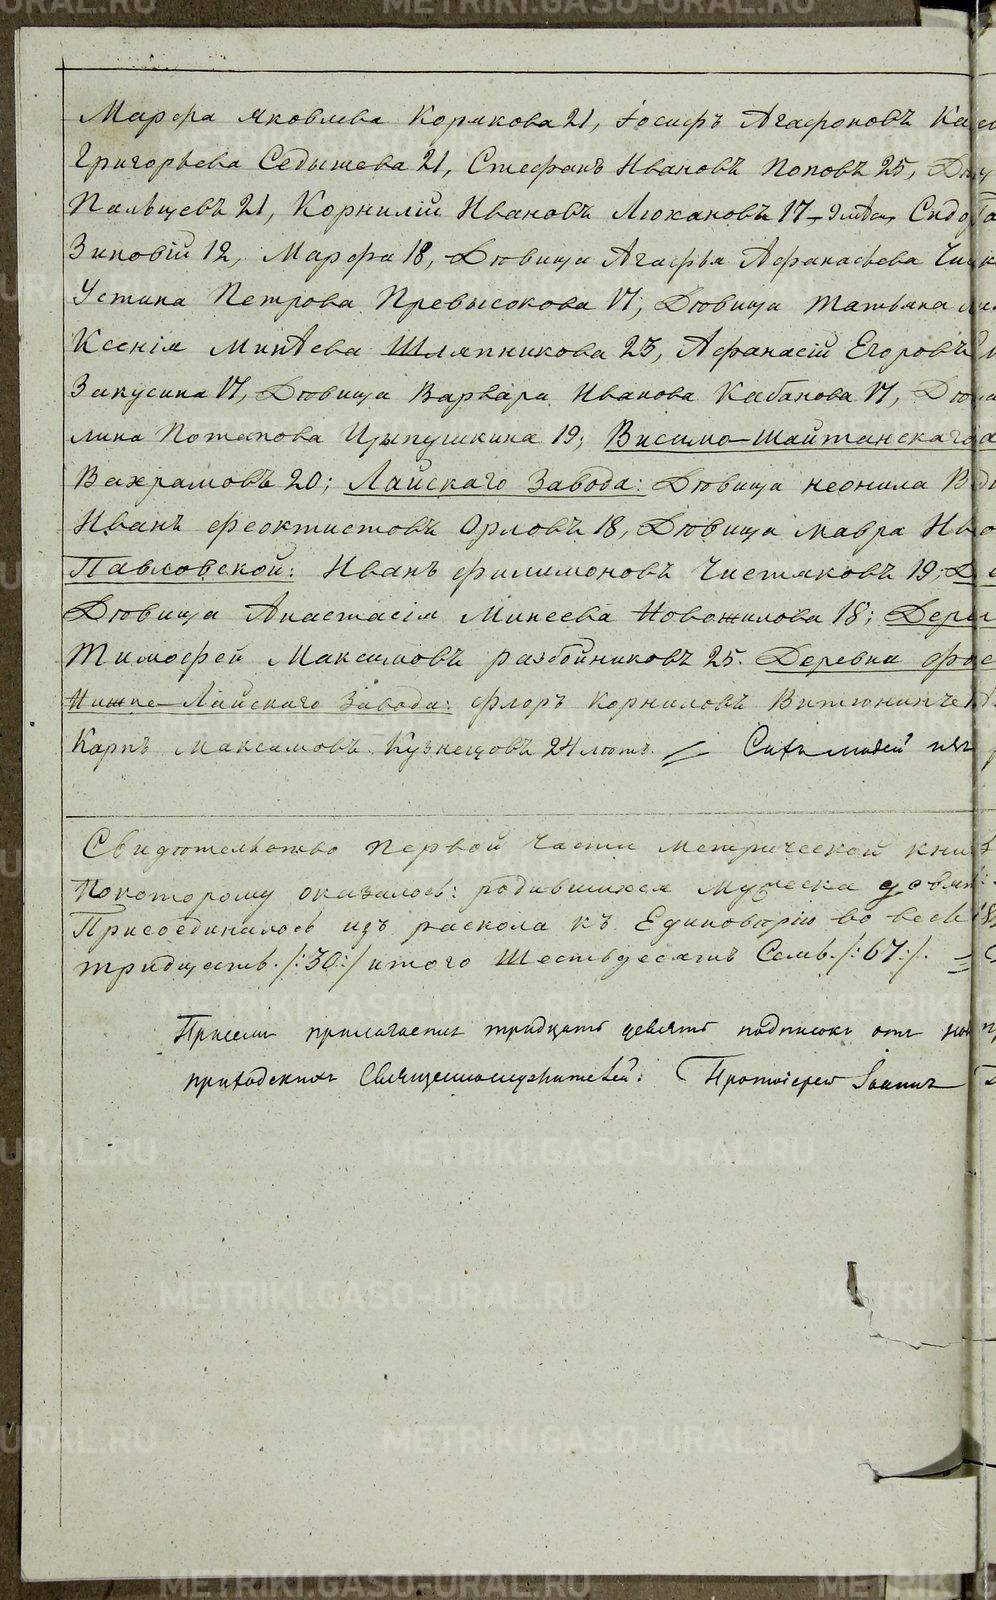 Марфа Яковлева Корякова 21, Іосифъ Агафоновъ Ка
Григорьева Седышева 21, Стефанъ Ивановъ Поповъ 25,
Пальцевъ 21, Корнилій Ивановъ Люхановъ 17, Сидо
Зиновій 12, Марфа 18, Дѣвица Агафья Афанасьева
Устина Петрова Превысокова 17, Дѣвица Татьяна
Ксенія Минѣева Шляпникова 23, Афанасій Егоровъ
Закусина 17, Дѣвица Варвара Иванова Кабанова 17,
лина Потапова Цыпушкина 19; Висимо-Шайтанскаго
Вахрамовъ 20; Лайскаго Завода: Дѣвица Неонила
Иванъ Феоктистовъ Орловъ 18, Дѣвица Мавра Ив
Павловской: Иванъ Филимоновъ Чистяковъ 19;
Дѣвица Анастасія Минеева Новожилова 18; Дерев
Тимофей Максимовъ Разбойниковъ 25. Деревни
Нижне-Лайскаго Завода: Флоръ Корниловъ
Карпъ Максимовъ Кузнецовъ 24 лѣтъ. Сихъ людей
Свидѣтельство первой части метрической книг
Покоторому оказалось: родившихся мужеска
Присоединилось изъ раскола къ Единовѣрію во все
тридцать /:30:/ итого Шестьдесятъ Семь /:67:/.
При семъ прилагается тридцать девять подписокъ отъ
приходскихъ Священнослужителей: Протоіерей Іоаннъ
METRIKI.GASO-URAL.RU